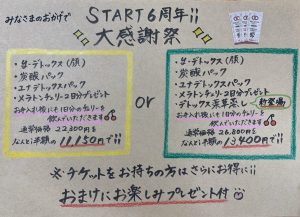 みなさまのおかげで
START 6周年!!
大感謝祭
・骨デトックス(顔)
・炭酸パック
・エナデトックスパック
・メラトンチェリー2日分プレゼント
お手入れ後にも1日分のチェリーを
飲んでいただきます
通常価格 22,300円を
なんと!半額の 11,150円で!!
or
・骨デトックス(顔)
・炭酸パック
・エナデトックスパック
・メラトンチェリー2日分プレゼント
・デトックス薬草蒸し 新登場!
お手入れ後にも1日分のチェリーを
飲んでいただきます
通常価格 26,800円を
なんと!半額の 13,400円で!!
※チケットをお持ちの方はさらにお得に!!
おまけにお楽しみプレゼント付